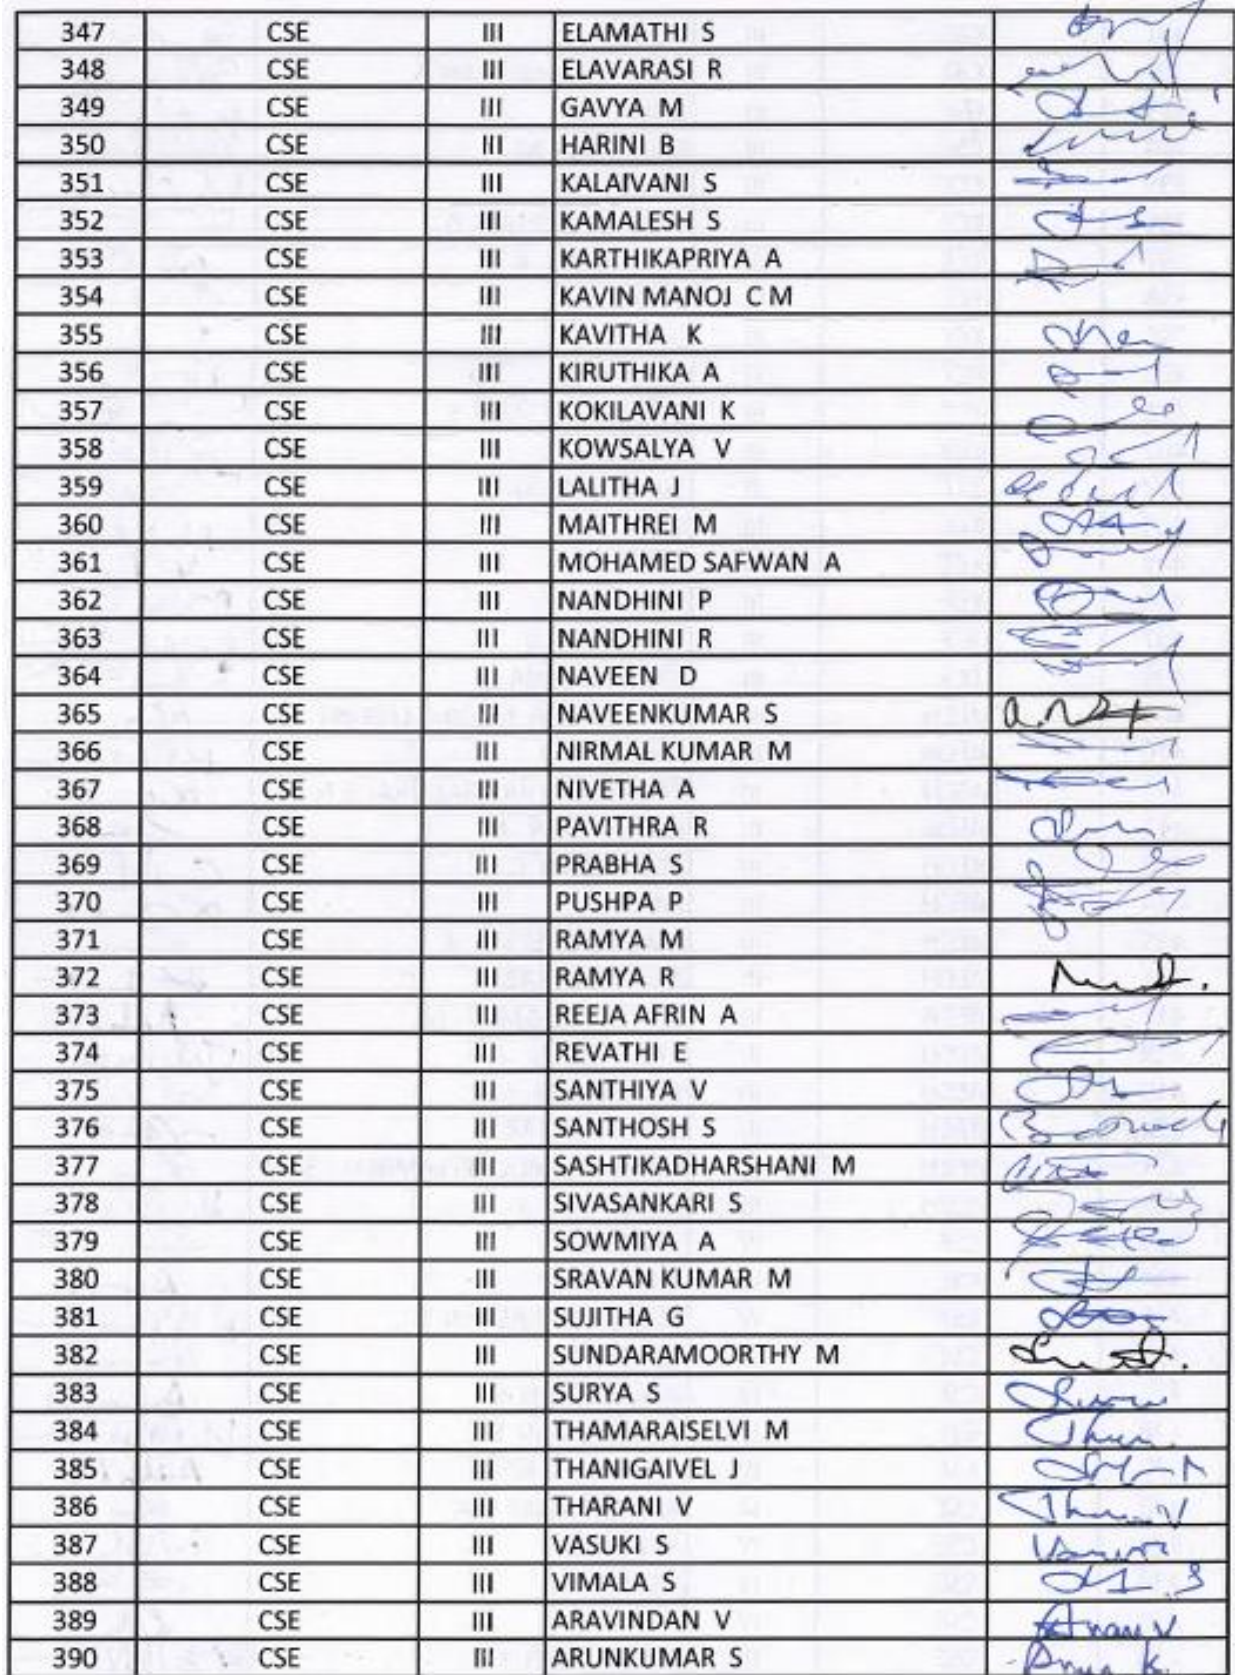 347 CSE III ELAMATHI S
348 CSE III ELAVARASI R
349 CSE III GAVYA M
350 CSE III HARINI B
351 CSE III KALAIVANI S
352 CSE III KAMALESH S
353 CSE III KARTHIKAPRIYA A
354 CSE III KAVIN MANOJ C M
355 CSE III KAVITHA K
356 CSE III KIRUTHIKA A
357 CSE III KOKILAVANI K
358 CSE III KOWSALYA V
359 CSE III LALITHA J
360 CSE III MAITHREI M
361 CSE III MOHAMED SAFWAN A
362 CSE III NANDHINI P
363 CSE III NANDHINI R
364 CSE III NAVEEN D
365 CSE III NAVEENKUMAR S
366 CSE III NIRMAL KUMAR M
367 CSE III NIVETHA A
368 CSE III PAVITHRA R
369 CSE III PRABHA S
370 CSE III PUSHPA P
371 CSE III RAMYA M
372 CSE III RAMYA R
373 CSE III REEJA AFRIN A
374 CSE III REVATHI E
375 CSE III SANTHIYA V
376 CSE III SANTHOSH S
377 CSE III SASHTIKADHARSHANI M
378 CSE III SIVASANKARI S
379 CSE III SOWMIYA A
380 CSE III SRAVAN KUMAR M
381 CSE III SUJITHA G
382 CSE III SUNDARAMOORTHY M
383 CSE III SURYA S
384 CSE III THAMARAISELVI M
385 CSE III THANIGAIVEL J
386 CSE III THARANI V
387 CSE III VASUKI S
388 CSE III VIMALA S
389 CSE III ARAVINDAN V
390 CSE III ARUNKUMAR S